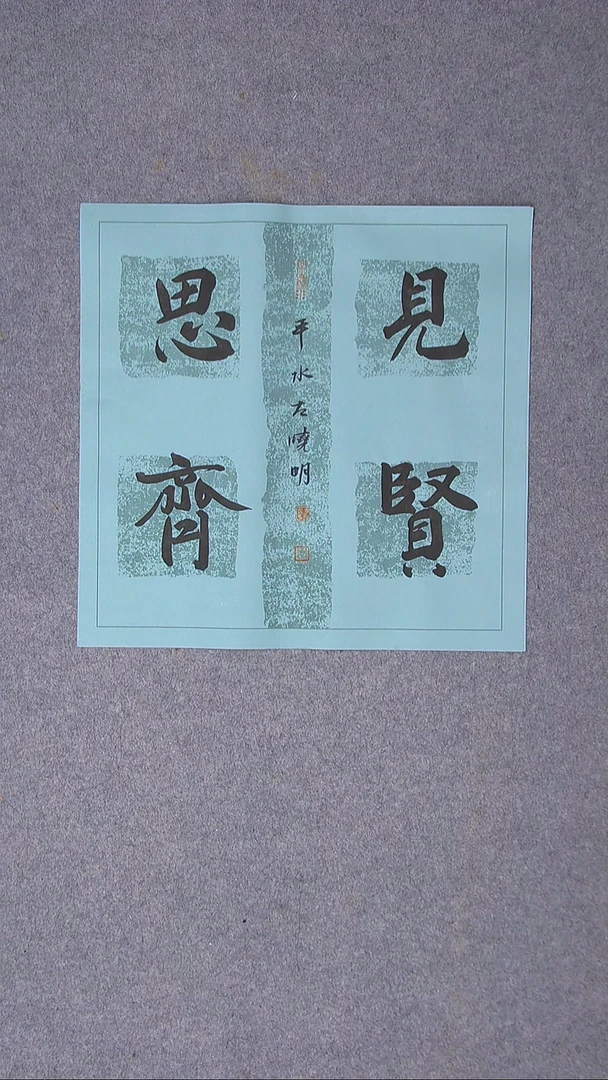 見賢
思齊
平水左曉明